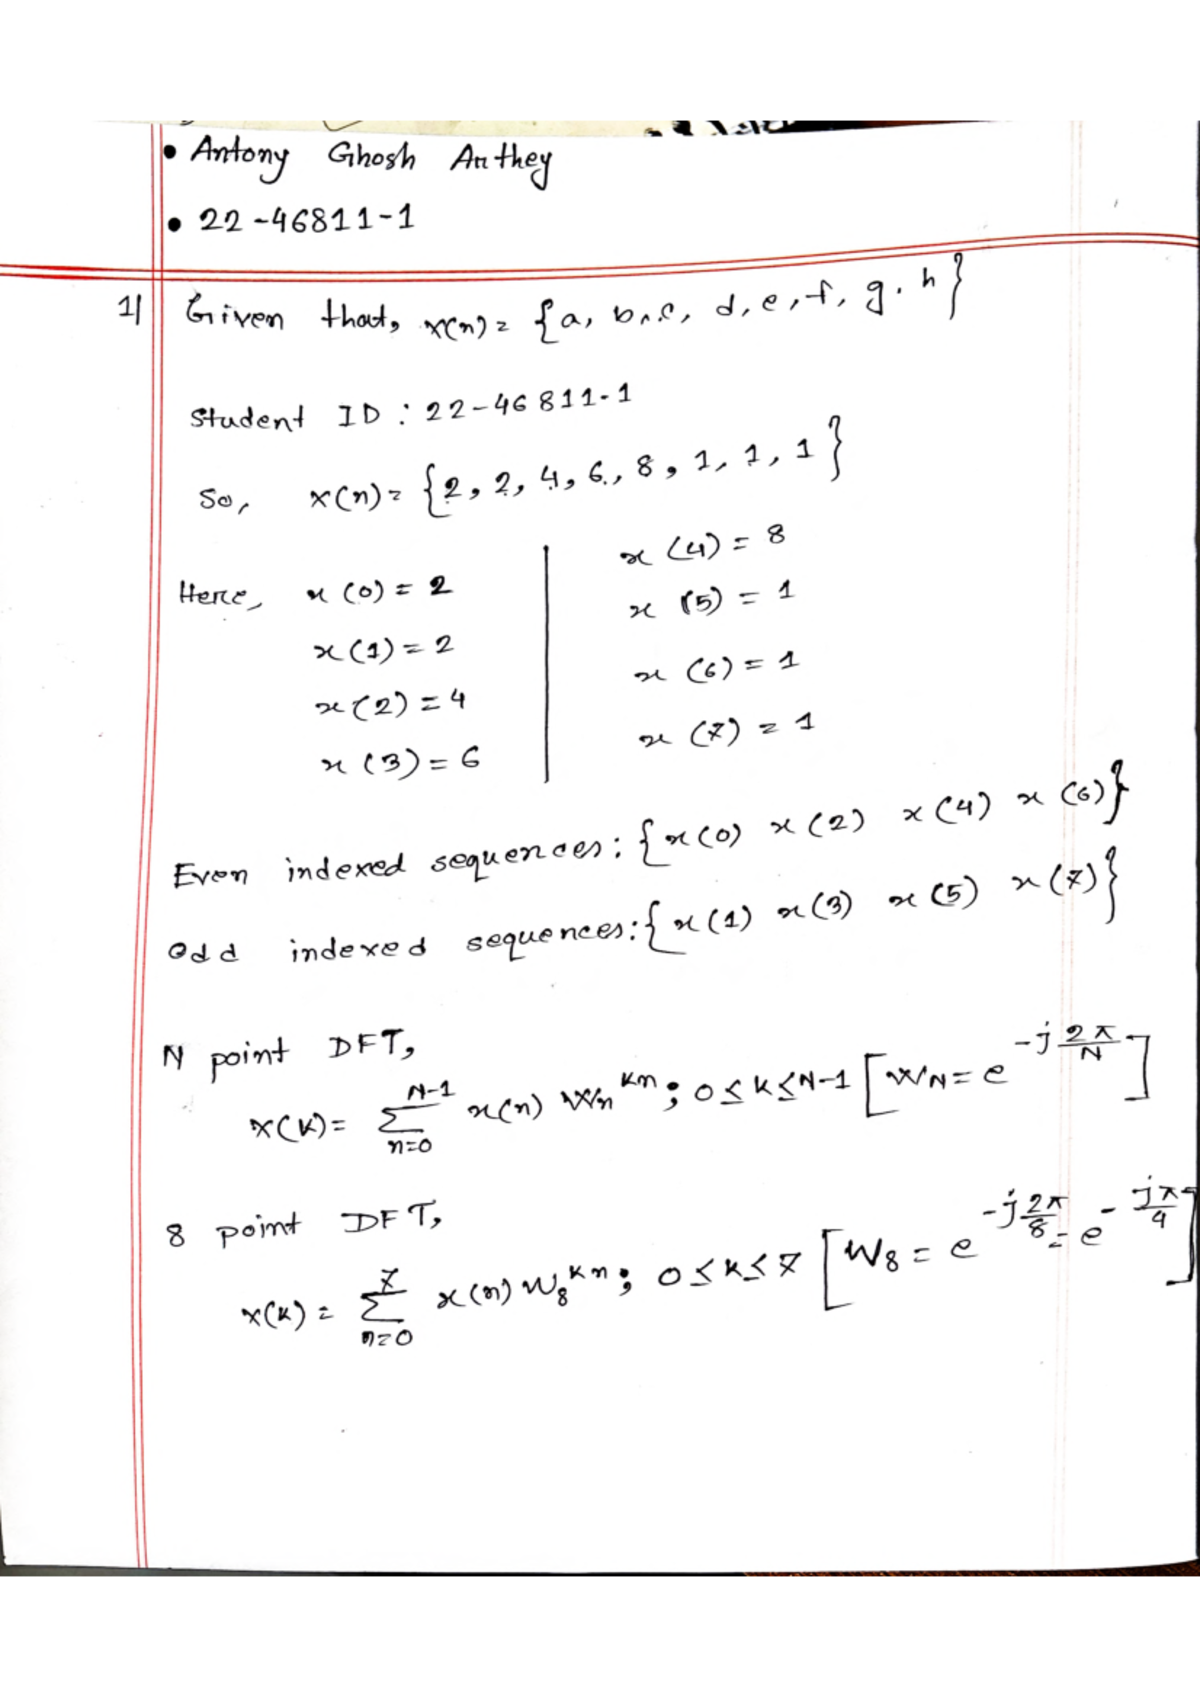 • Antony Ghosh Anthey
• 22-46811-1
1| Given that, x(n) = {a, b, c, d, e, f, g, h}
Student ID : 22-46811-1
So, x(n) = {2, 2, 4, 6, 8, 1, 1, 1}
Here, x(0) = 2
x(1) = 2
x(2) = 4
x(3) = 6
x(4) = 8
x(5) = 1
x(6) = 1
x(7) = 1
Even indexed sequences: {x(0) x(2) x(4) x(6)}
Odd indexed sequences: {x(1) x(3) x(5) x(7)}
N point DFT,
X(k) = Σ_{n=0}^{N-1} x(n) Wn^{kn}; 0≤k≤N-1 [W_N = e^{-j2π/N}]
8 point DFT,
X(k) = Σ_{n=0}^{7} x(n) W_8^{kn}; 0≤k≤7 [W_8 = e^{-j2π/8} = e^{-jπ/4}]